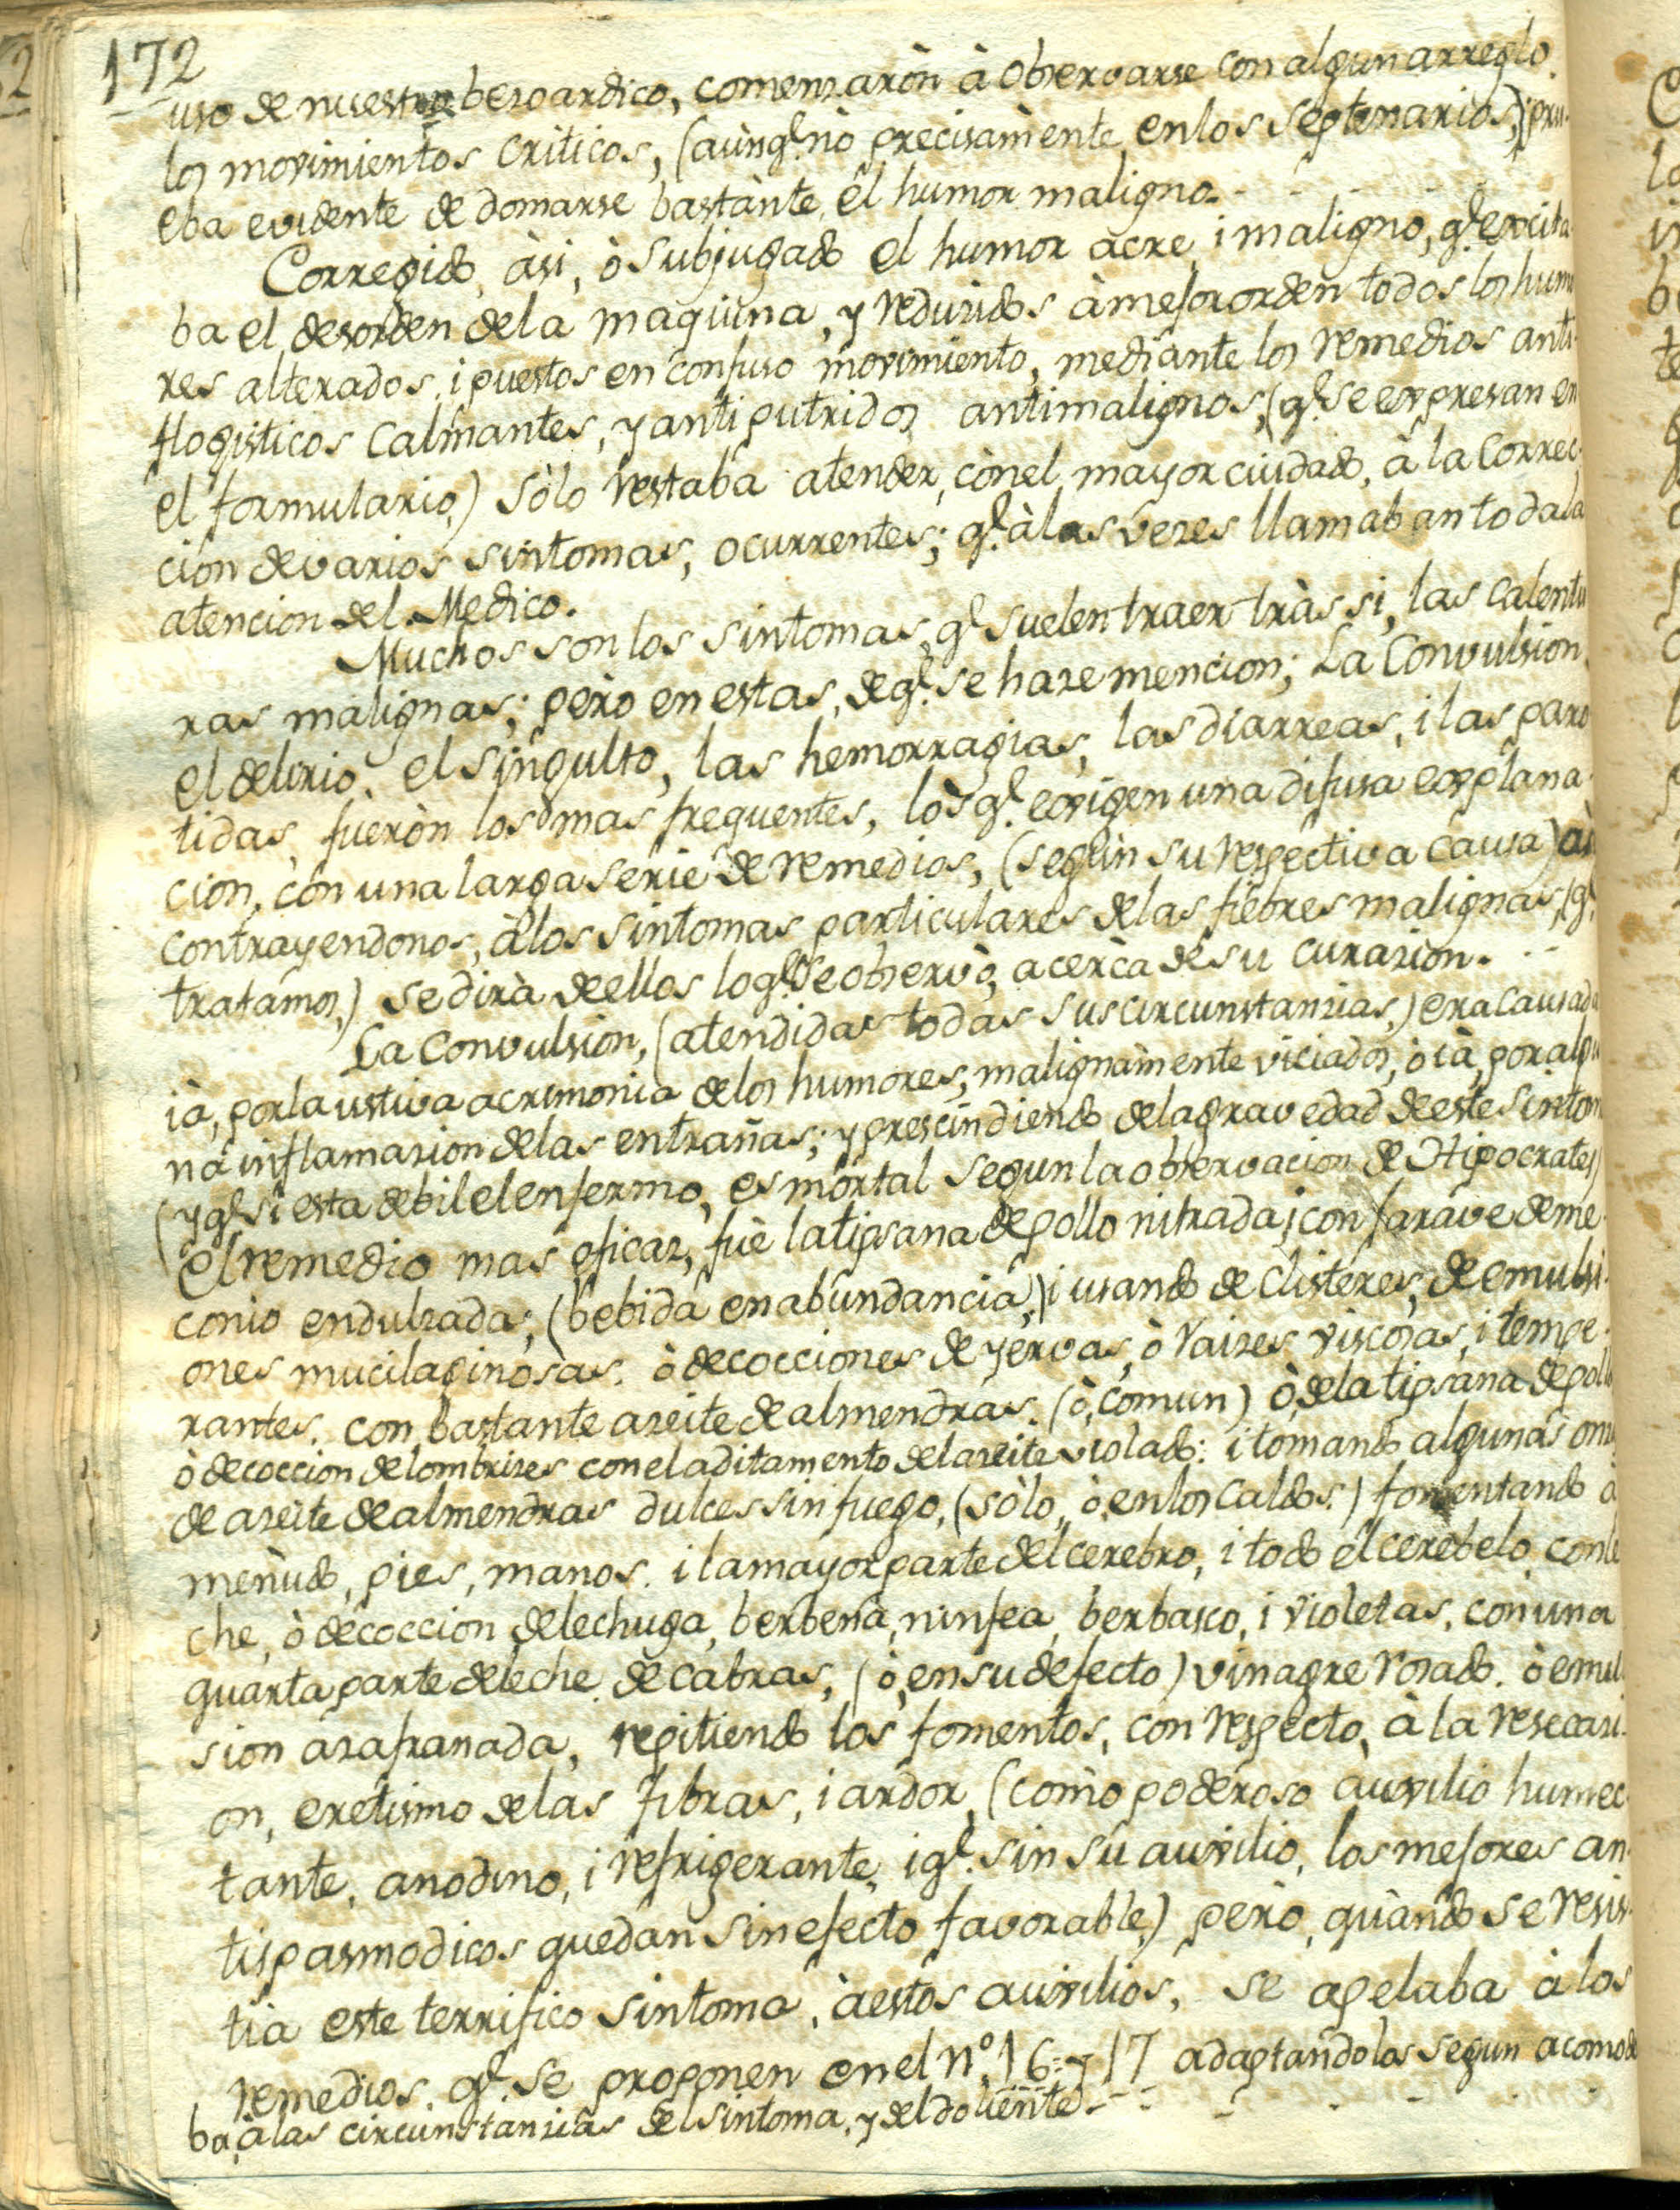 172
uso de nuestro bezoardico, comenzaròn à observarse con algun arreglo
los movimientos criticos, (aùnq.e nò precisamente en los septenarios,) pru-
eba evidente de domarse bastànte el humor maligno.
Corregido, àsi, ò subjugado el humor acre i maligno, q.e excita-
ba el desorden de la maquina, y reduzidos à mejor orden todos los humo
res alterados, i puestos en confuso movimiento, mediante los remedios anti-
flogisticos calmantes, y antiputridos antimalignos, (q.e se expresan en
el formulario,) sòlo restaba atender, con el mayor cuidado, à la correc-
cion de varios sintomas, ocurrentes; q.e à las vezes llamaban toda la
atencion del Medico.
Muchos son los sintomas, q.e suelen traer tràs si, las calentu
ras malignas; pero en estas, de q.e se haze mencion; La Convulsion,
el delirio, el singulto, las hemorragias, las diarreas, i las paro
tidas, fueròn los mas frequentes, los q.e exigen una difusa explana-
cion, con una larga serie de remedios, (segùn su respectiva causa)
contrayendonos, à los sintomas particulares de las fiebres malignas, (q.e
tratamos,) se dirà de ellos lo q.e se observò, acerca de su curazion.
La Convulsion, (atendidas todas sus circunstanzias,) era causada
ià, por la ustiva acrimonia de los humores, malignamente viciados, ò ià, por algu
na inflamazion de las entrañas; y prescindiendo de la gravedad de este sintom
(y q.e si esta debil el enfermo, es mortal segun la observacion de Hipocrates)
el remedio mas eficaz, fuè la tipsana de pollo nitrada; con jarave de me-
conio endulzada; (bebida en abundancia,) i usando de clisteres, de emulsi-
ones mucilaginosas, ò decocciones de yervas, ò raizes viscosas, i tempe-
rantes, con bastante azeite de almendras, (ò, comun) ò, de la tipsana de pollo
ò decoccion de lombrizes con el aditamento del azeite violado: i tomando algunas onz
de azeite de almendras dulces sin fuego, (sòlo, ò, en los caldos.) fomentando à
menùdo, pies, manos, i la mayor parte del cerebro, i todo el cerebelo, con le
che, ò decoccion de lechuga, berbena, ninfea, berbasco, i violetas, con una
quarta parte de leche de cabras, (ò, en su defecto) vinagre rosado, ò emul-
sion azafranada, repitiendo los fomentos, con respecto, à la resecazi-
on, eretismo de las fibras, i ardor, (como poderoso auxilio humec-
tante, anodino, i refrigerante, i q.e sin su auxilio, los mejores an-
tispasmodicos quedan sin efecto favorable,) pero, quàndo se resis-
tia este terrifico sintoma, à estos auxilios, se apelaba à los
remedios, q.e se proponen en el n.o 16: y 17 adaptandolos segun acomoda
ba, à las circunstanzias del sintoma, y del doliente